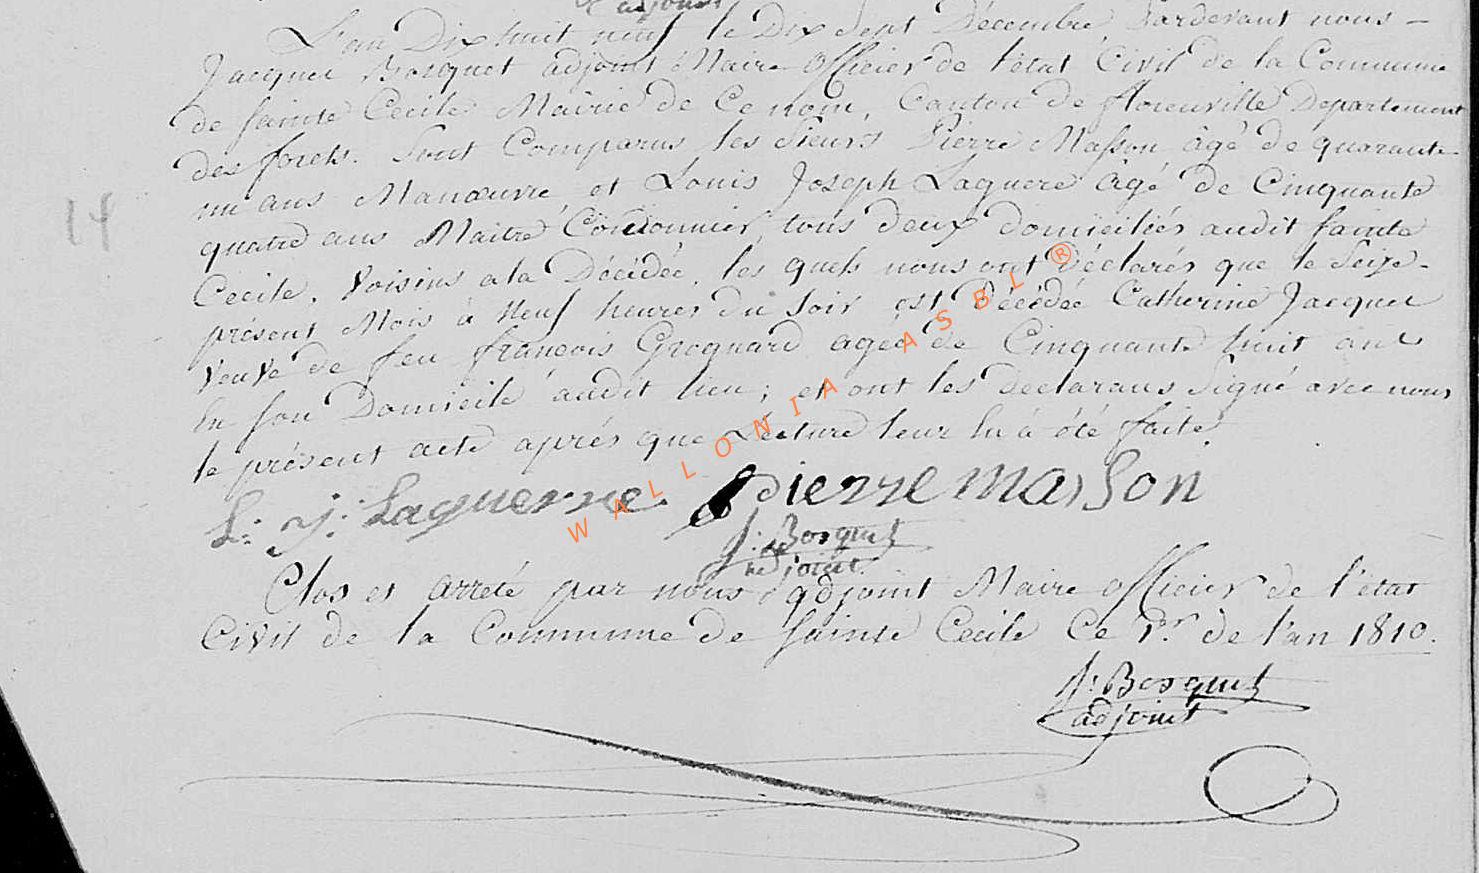 adjoint
L'an Dix huit neuf le Dix Sept Décembre, Pardevant nous -
Jacques Bosquet adjoint Maire officier de l'état Civil de la Commune
de Sainte Cecile Mairie de Ce nom, Canton de florenville Departement
des forets. Sont Comparus les Sieurs Pierre Masson âgé de quarante-
un ans Manœuvre, et Louis Joseph Laguere agé de Cinquante
quatre ans Maitre Cordonnier, tous deux domiciliés audit Sainte
Cecile. Voisins a la Décédée, les quels nous ont Déclarés que le Seize-
présent Mois à Neuf heures du Soir est Décédée Catherine Jacques
Veuve de feu françois Grognard agée de Cinquante huit ans
en Son Domicile audit lieu; et ont les declarans Signé avec nous
le présent acte après que Lecture leur en à été faite.
L: J: Laguerre Pierre Masson
J: Bosquet
adjoint
Clos et arreté par nous adjoint Maire officier de l'état
Civil de la Commune de Sainte Cecile Ce 1.er de l'an 1810.
J: Bosquet
adjoint
14
WALLONIA ASBL ®